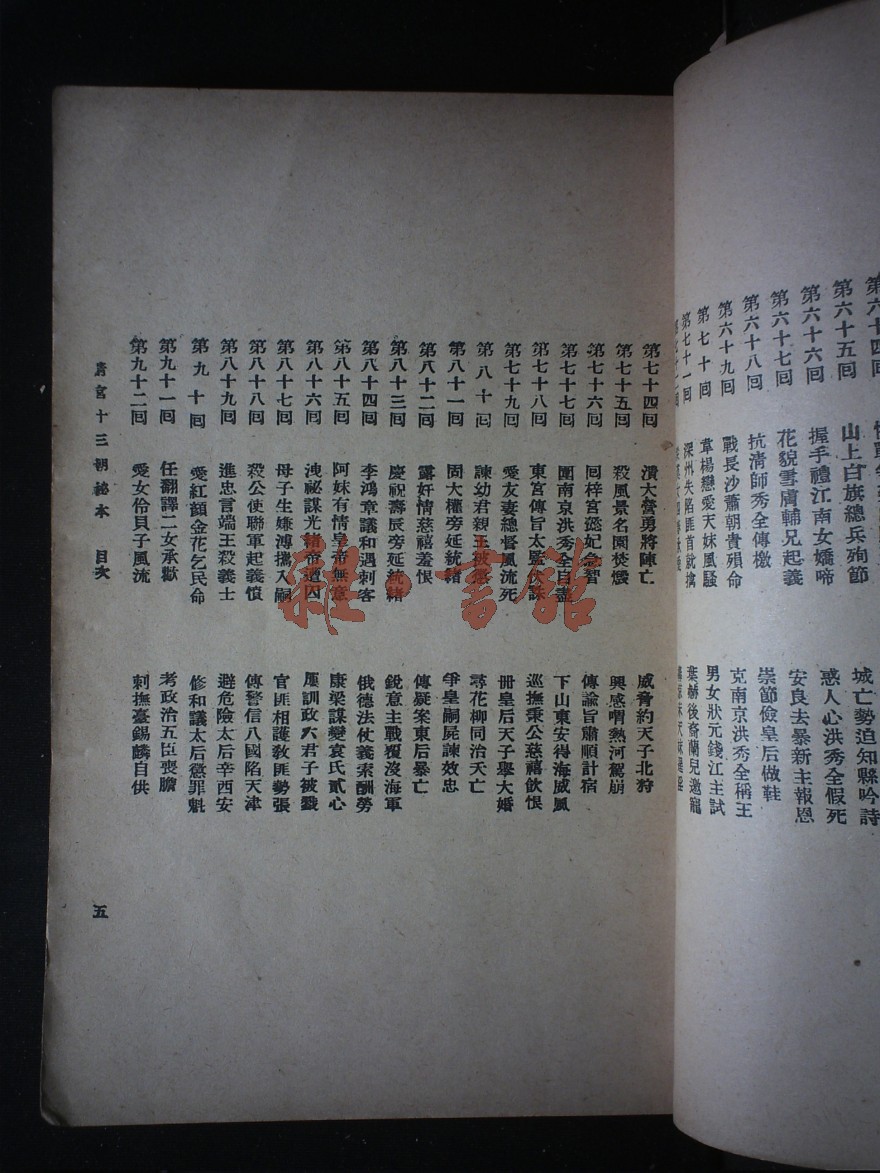 第六十四回
第六十五回 山上白旗總兵殉節 城亡勢迫知縣吟詩
第六十六回 握手禮江南女嬌啼 惑人心洪秀全假死
第六十七回 花貌雪膚輔兄起義 安良去暴新主報恩
第六十八回 抗清師秀全傳檄 崇節儉皇后做鞋
第六十九回 戰長沙蕭朝貴殞命 克南京洪秀全稱王
第七十回 韋楊戀愛天妹風騷 男女狀元錢江主試
第七十一回 深州失陷匪首就擒 葉赫後裔蘭兒邀寵
第七十四回 潰大營勇將陣亡 威脅約天子北狩
第七十五回 殺風景名園焚燬 興感喟熱河駕崩
第七十六回 回梓宮懿妃急智 傳諭旨肅順計宿
第七十七回 圍南京洪秀全自盡 下山東安得海威風
第七十八回 東宮傳旨太監伏誅 巡撫秉公慈禧飲恨
第七十九回 愛友妻總督風流死 冊皇后天子舉大婚
第八十回 諫幼君親王被懲 尋花柳同治夭亡
第八十一回 固大權旁延統緒 爭皇嗣屍諫效忠
第八十二回 露奸情慈禧羞恨 傳疑案東后暴亡
第八十三回 慶祝壽辰旁延統緒 銳意主戰覆沒海軍
第八十四回 李鴻章議和遇刺客 俄德法仗義索酬勞
第八十五回 阿妹有情皇帝無意 康梁謀變袁氏貳心
第八十六回 洩祕謀光緒帝遭囚 屢訓政六君子被戮
第八十七回 母子生嫌溥攜入嗣 官匪相護敎匪勢張
第八十八回 殺公使聯軍起義憤 傳警信八國陷天津
第八十九回 進忠言端王殺義士 避危險太后幸西安
第九十回 愛紅顏金花乞民命 修和議太后懲罪魁
第九十一回 任翻譯二女承歡 考政治五臣喪膽
第九十二回 愛女伶貝子風流 刺撫臺錫麟自供
宮十三朝祕本 目次
五
雜·書館